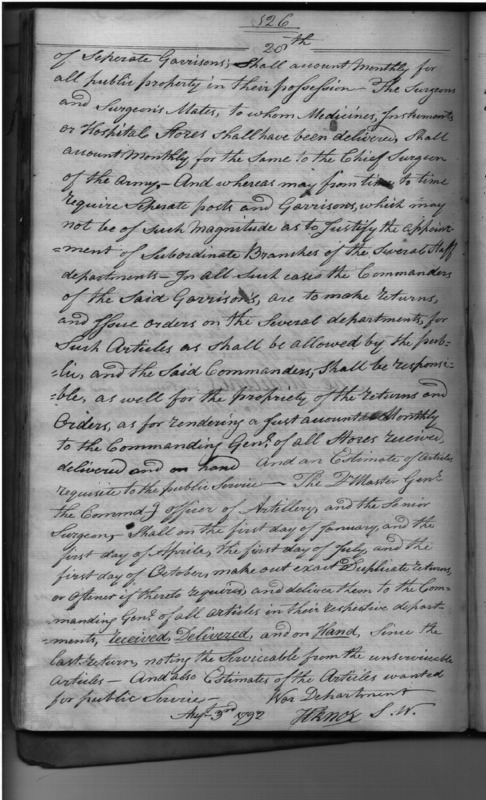 526
20th
of Seperate Garrisons; Shall account Monthly for
all public property in their possession — The Surgeons
and Surgeon's Mates, to whom Medicines, Instruments
or Hospital Stores shall have been delivered, Shall
account Monthly for the Same to the Chief Surgeon
of the Army, — And whereas may from time to time
require Seperate posts and Garrisons, which may
not be of Such Magnitude as to Justify the appoint-
=ment of Subordinate Branches of the Several Staff
departments — In all Such cases the Commanders
of the Said Garrison's, are to make returns,
and Issue orders on the Several departments, for
Such Articles as Shall be allowed by the pub-
=lic, and the Said Commanders, Shall be responsi-
=ble, as well for the propriety of the returns and
Orders, as for rendering a Just account Monthly
to the Commanding Genl. of all Stores received,
delivered and on hand And an Estimate of articles
requisite to the public Service — The Qr Master Genl.
the Command-g officer of Artillery, and the Senior
Surgeon, Shall on the first day of January, and the
first day of Aprile, the first day of July, and the
first day of October, make out exact Duplicate returns,
or oftener if thereto required, and deliver them to the Com-
manding Genl. of all articles in their respective depart-
=ments, received, Delivered, and on Hand, Since the
last return, noting the Serviceable from the unserviceable
articles — And also Estimates of the Articles wanted
for public Service — War Department
Augt. 3rd 1792 HKnox S. W.